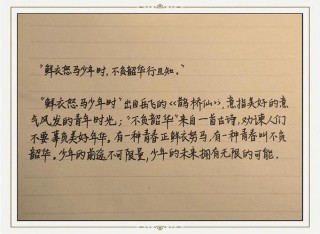 "鲜衣怒马少年时，不负韶华行且知。"
"鲜衣怒马少年时"出自岳飞的《鹊桥仙》，意指美好的意
气风发的青年时光；"不负韶华"来自一首古诗，劝谏人们
不要辜负美好年华。有一种青春正鲜衣怒马，有一种青春叫不负
韶华。少年的前途不可限量，少年的未来拥有无限的可能。